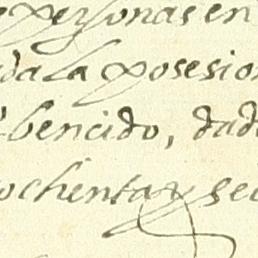 personas en
da la posesion
bencido, dad
ochenta y se